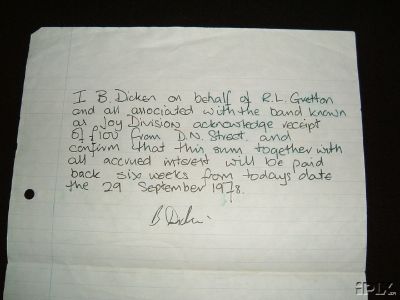 I B. Dicken on behalf of R.L. Gretton
and all associated with the band known
as Joy Division acknowledge receipt
of £100 from D.N. Street, and
confirm that this sum together with
all accrued interest will be paid
back six weeks from todays date
the 29 September 1978.
B Dicken